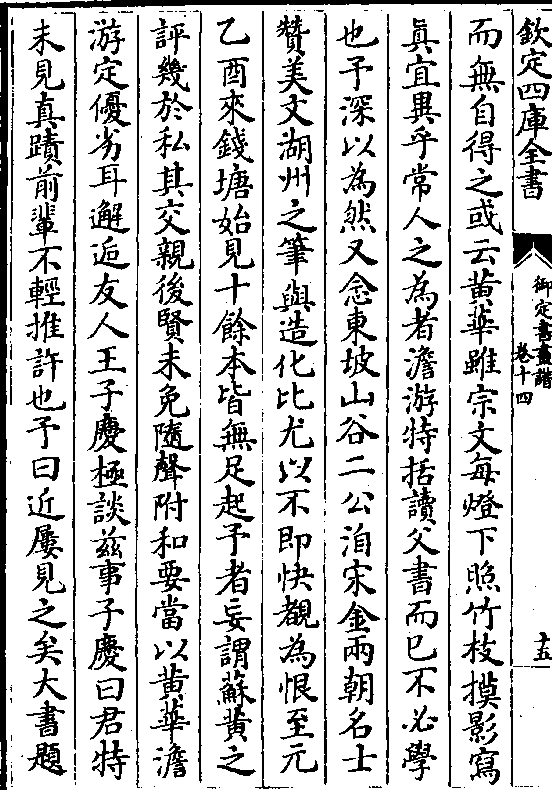 欽定四庫全書
御定書畫譜
卷十四
十五
而無自得之或云黄華雖宗文每燈下照竹枝摸影寫
真宜異乎常人之為者澹游特括讀父書而已不必學
也予深以為然又念東坡山谷二公洎宋金兩朝名士
賛美文湖州之筆與造化比尤以不即快覩為恨至元
乙酉來錢塘始見十餘本皆無足起予者妄謂蘇黄之
評幾於私其交親後賢未免隨聲附和要當以黄華澹
游定優劣耳邂逅友人王子慶極談兹事子慶曰君特
未見真蹟前輩不輕推許也予曰近屢見之矣大書題